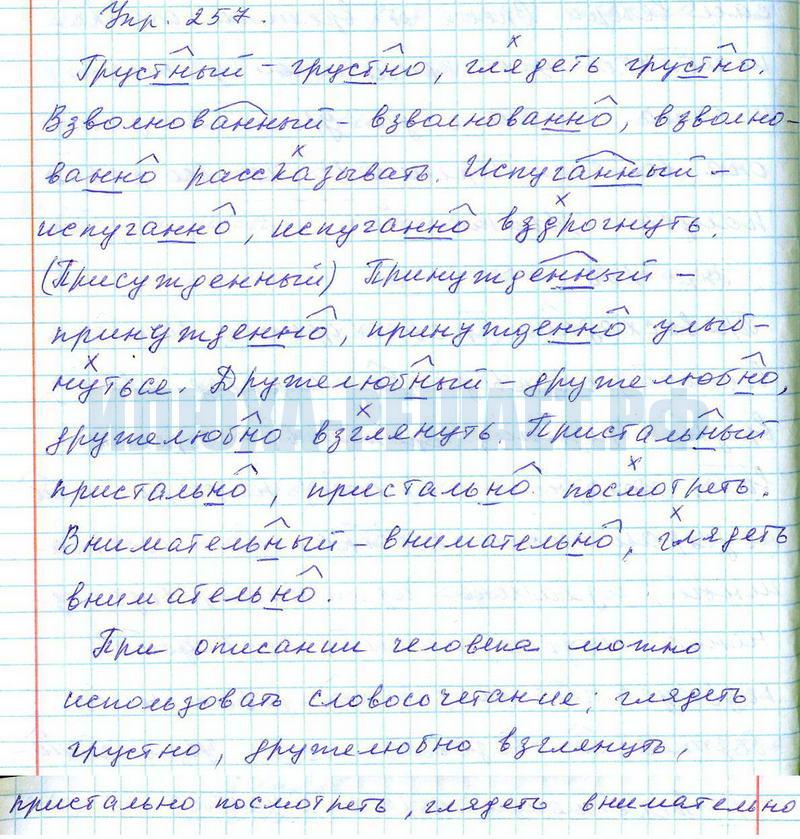 Упр. 257.
Грустный – грустно, глядеть грустно.
Взволнованный – взволнованно, взволно-
ванно рассказывать. Испуганный –
испуганно, испуганно вздрогнуть.
(Присужденный) Принужденный –
принужденно, принужденно улыб-
нуться. Дружелюбный – дружелюбно,
дружелюбно взглянуть. Пристальный
пристально, пристально посмотреть.
Внимательный – внимательно, глядеть
внимательно.
При описании человека можно
использовать словосочетание; глядеть
грустно, дружелюбно взглянуть,
пристально посмотреть, глядеть внимательно